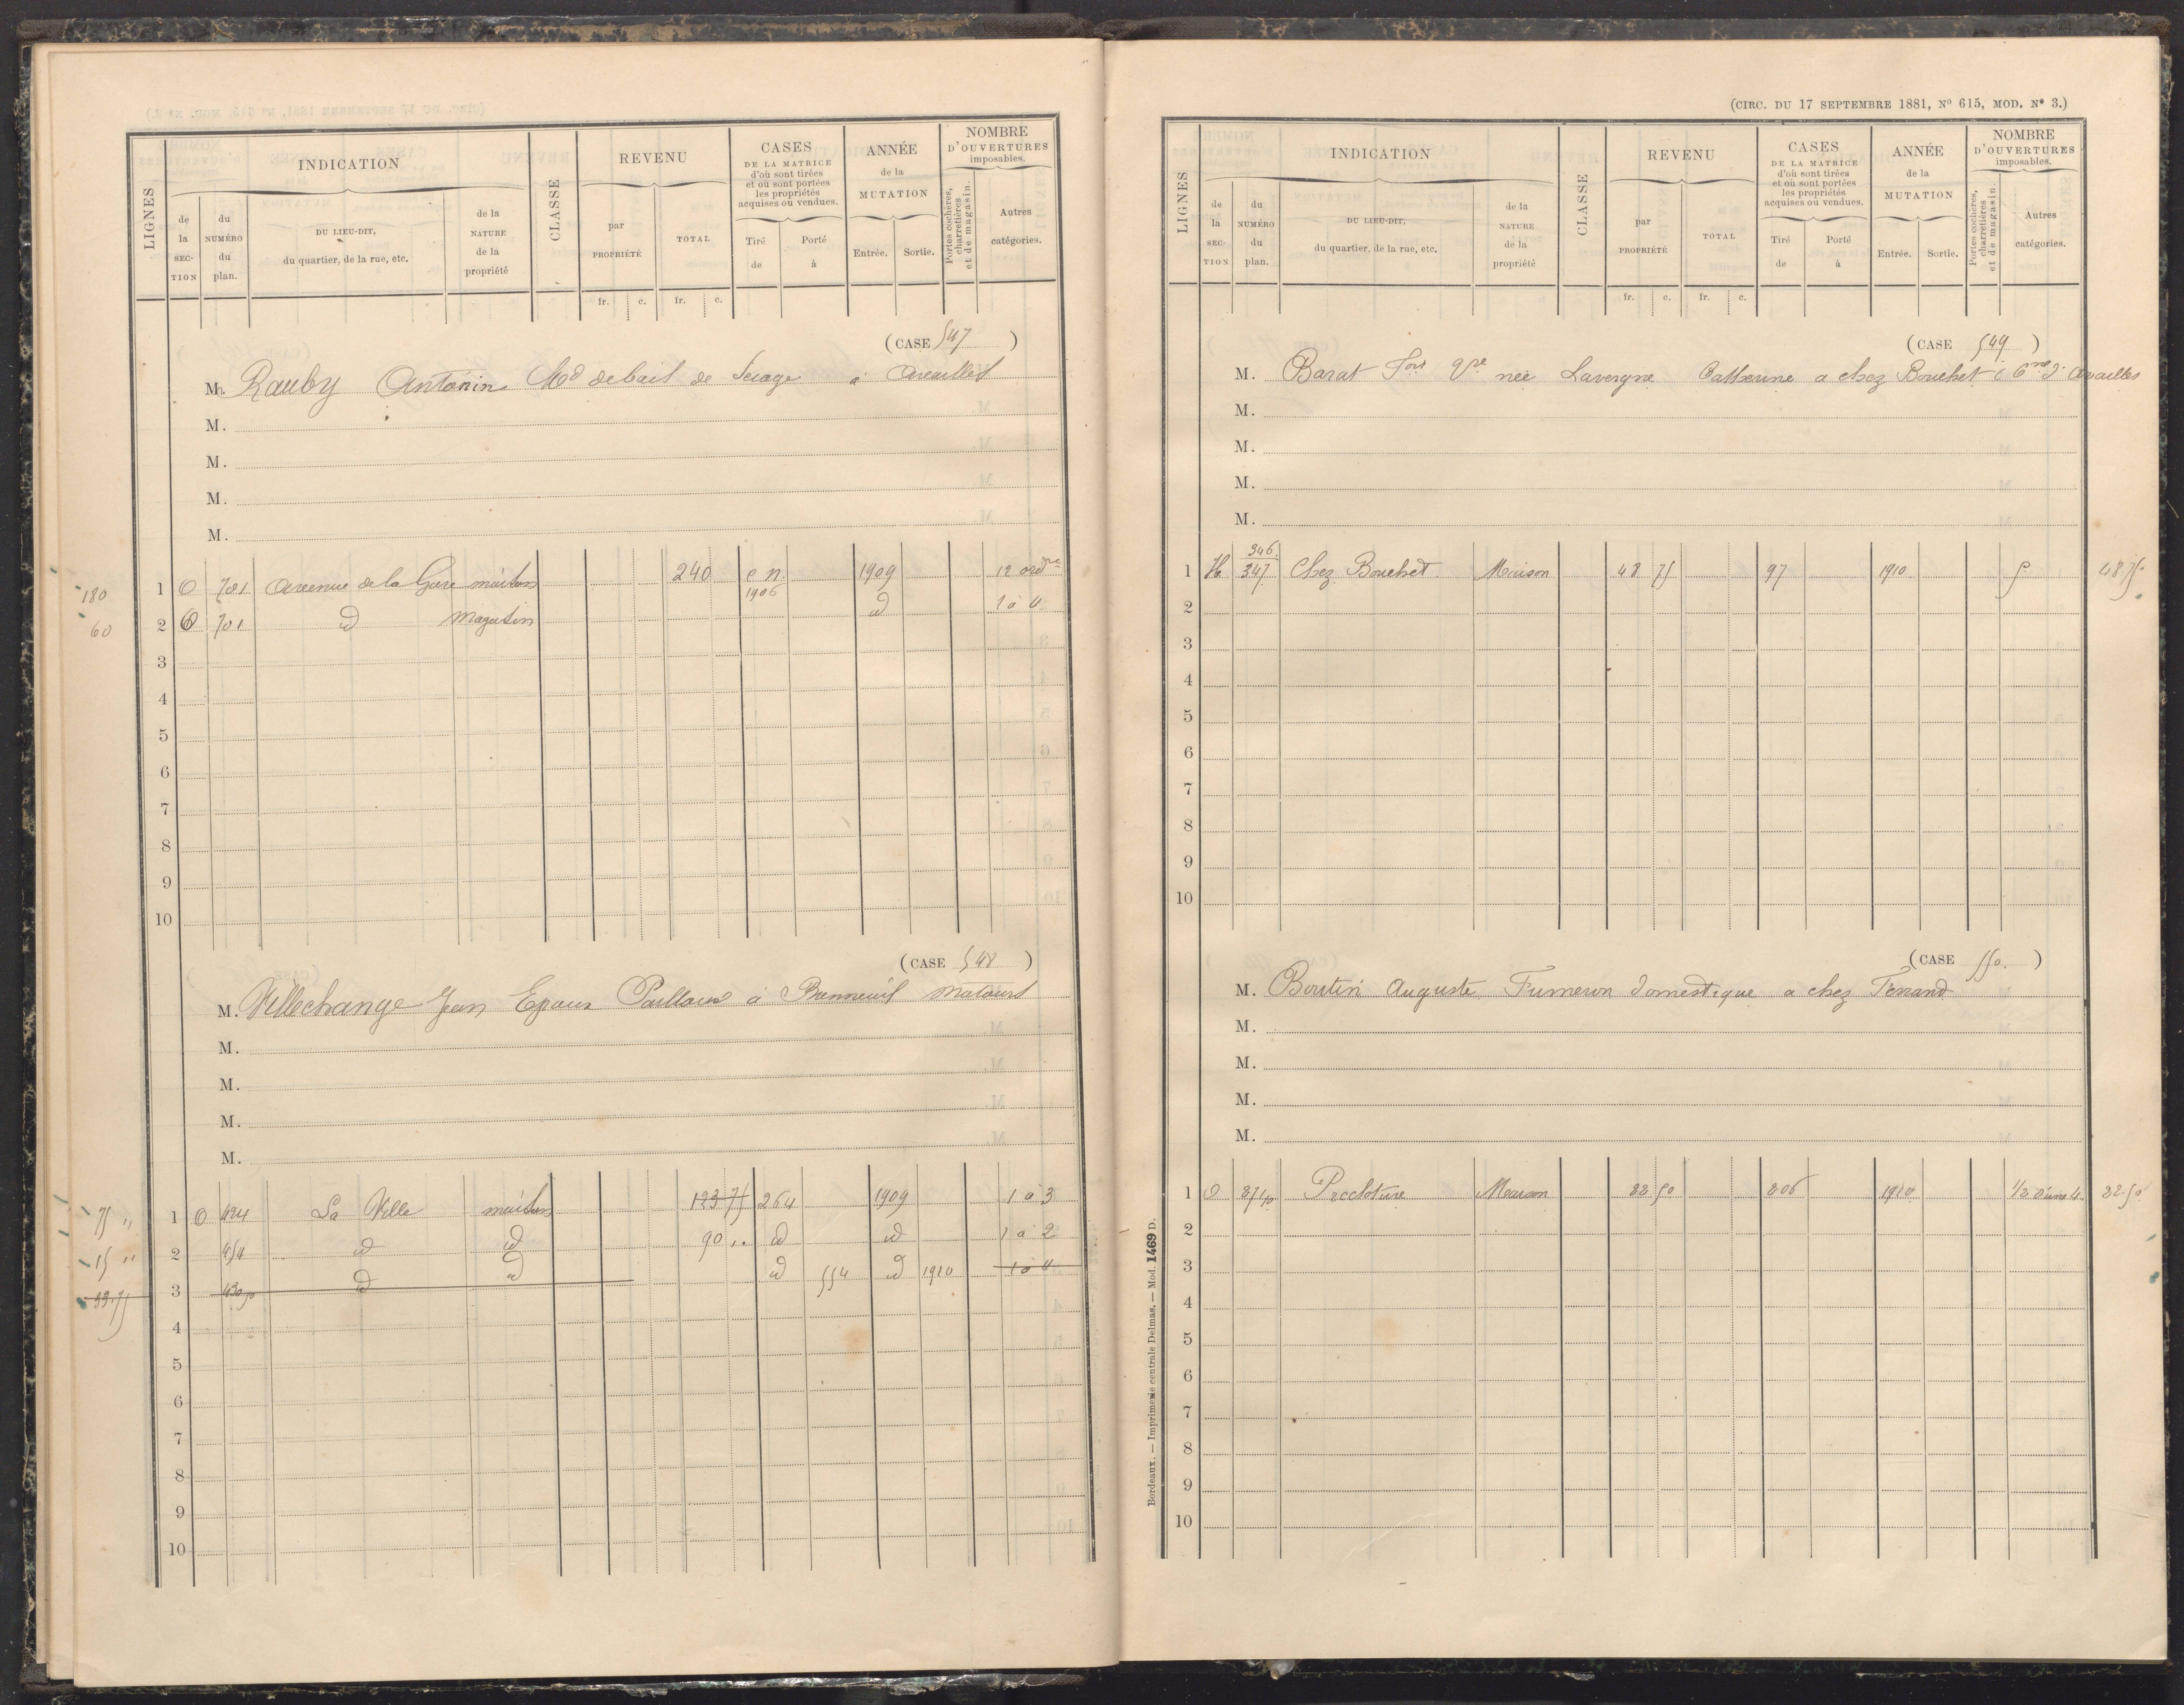 LIGNES
INDICATION
de la SECTION
du NUMÉRO du plan.
DU LIEU-DIT, du quartier, de la rue, etc.
de la NATURE de la propriété
CLASSE
REVENU
par PROPRIÉTÉ
TOTAL
CASES DE LA MATRICE d'où sont tirées et où sont portées les propriétés acquises ou vendues.
Tiré de
Porté à
ANNÉE de la MUTATION
Entrée.
Sortie.
NOMBRE D'OUVERTURES imposables.
Portes cochères, charretières et de magasin.
Autres catégories.
fr. c. fr. c.
(CASE 547)
M. Rauby Antonin Md de à
M.
M.
M.
M.
180 1 O 701 Avenue de la Gare maison 240 c n 1906 1909 12
60 2 O 701 id Magasin id 1 à
3
4
5
6
7
8
9
10
(CASE 548)
M. Villechange Jean Epoux à Bonneuil Matours
M.
M.
M.
M.
75 " 1 O 424 La Ville maison 123 75 264 1909 1 à 3
15 " 2 id id 90 " id id 1 à 2
33.75 3 id id id 554 id 1910
4
5
6
7
8
9
10
(CIRC. DU 17 SEPTEMBRE 1881, No 615, MOD. No 3.)
LIGNES
INDICATION
de la SECTION
du NUMÉRO du plan.
DU LIEU-DIT, du quartier, de la rue, etc.
de la NATURE de la propriété
CLASSE
REVENU
par PROPRIÉTÉ
TOTAL
CASES DE LA MATRICE d'où sont tirées et où sont portées les propriétés acquises ou vendues.
Tiré de
Porté à
ANNÉE de la MUTATION
Entrée.
Sortie.
NOMBRE D'OUVERTURES imposables.
Portes cochères, charretières et de magasin.
Autres catégories.
fr. c. fr. c.
(CASE 549)
M. Barat née Lavergne Catherine a chez Bouchet availles
M.
M.
M.
M.
1 H 346 347 Chez Bouchet Maison 48 75 97 1910 5 48.75
2
3
4
5
6
7
8
9
10
(CASE 550.)
M. Boutin Auguste Fumeron domestique a chez
M.
M.
M.
M.
1 O Maison 22 50 1910 22.50
2
3
4
5
6
7
8
9
10
Bordeaux. — Imprimerie centrale Delmas. — Mod. 1469 D.